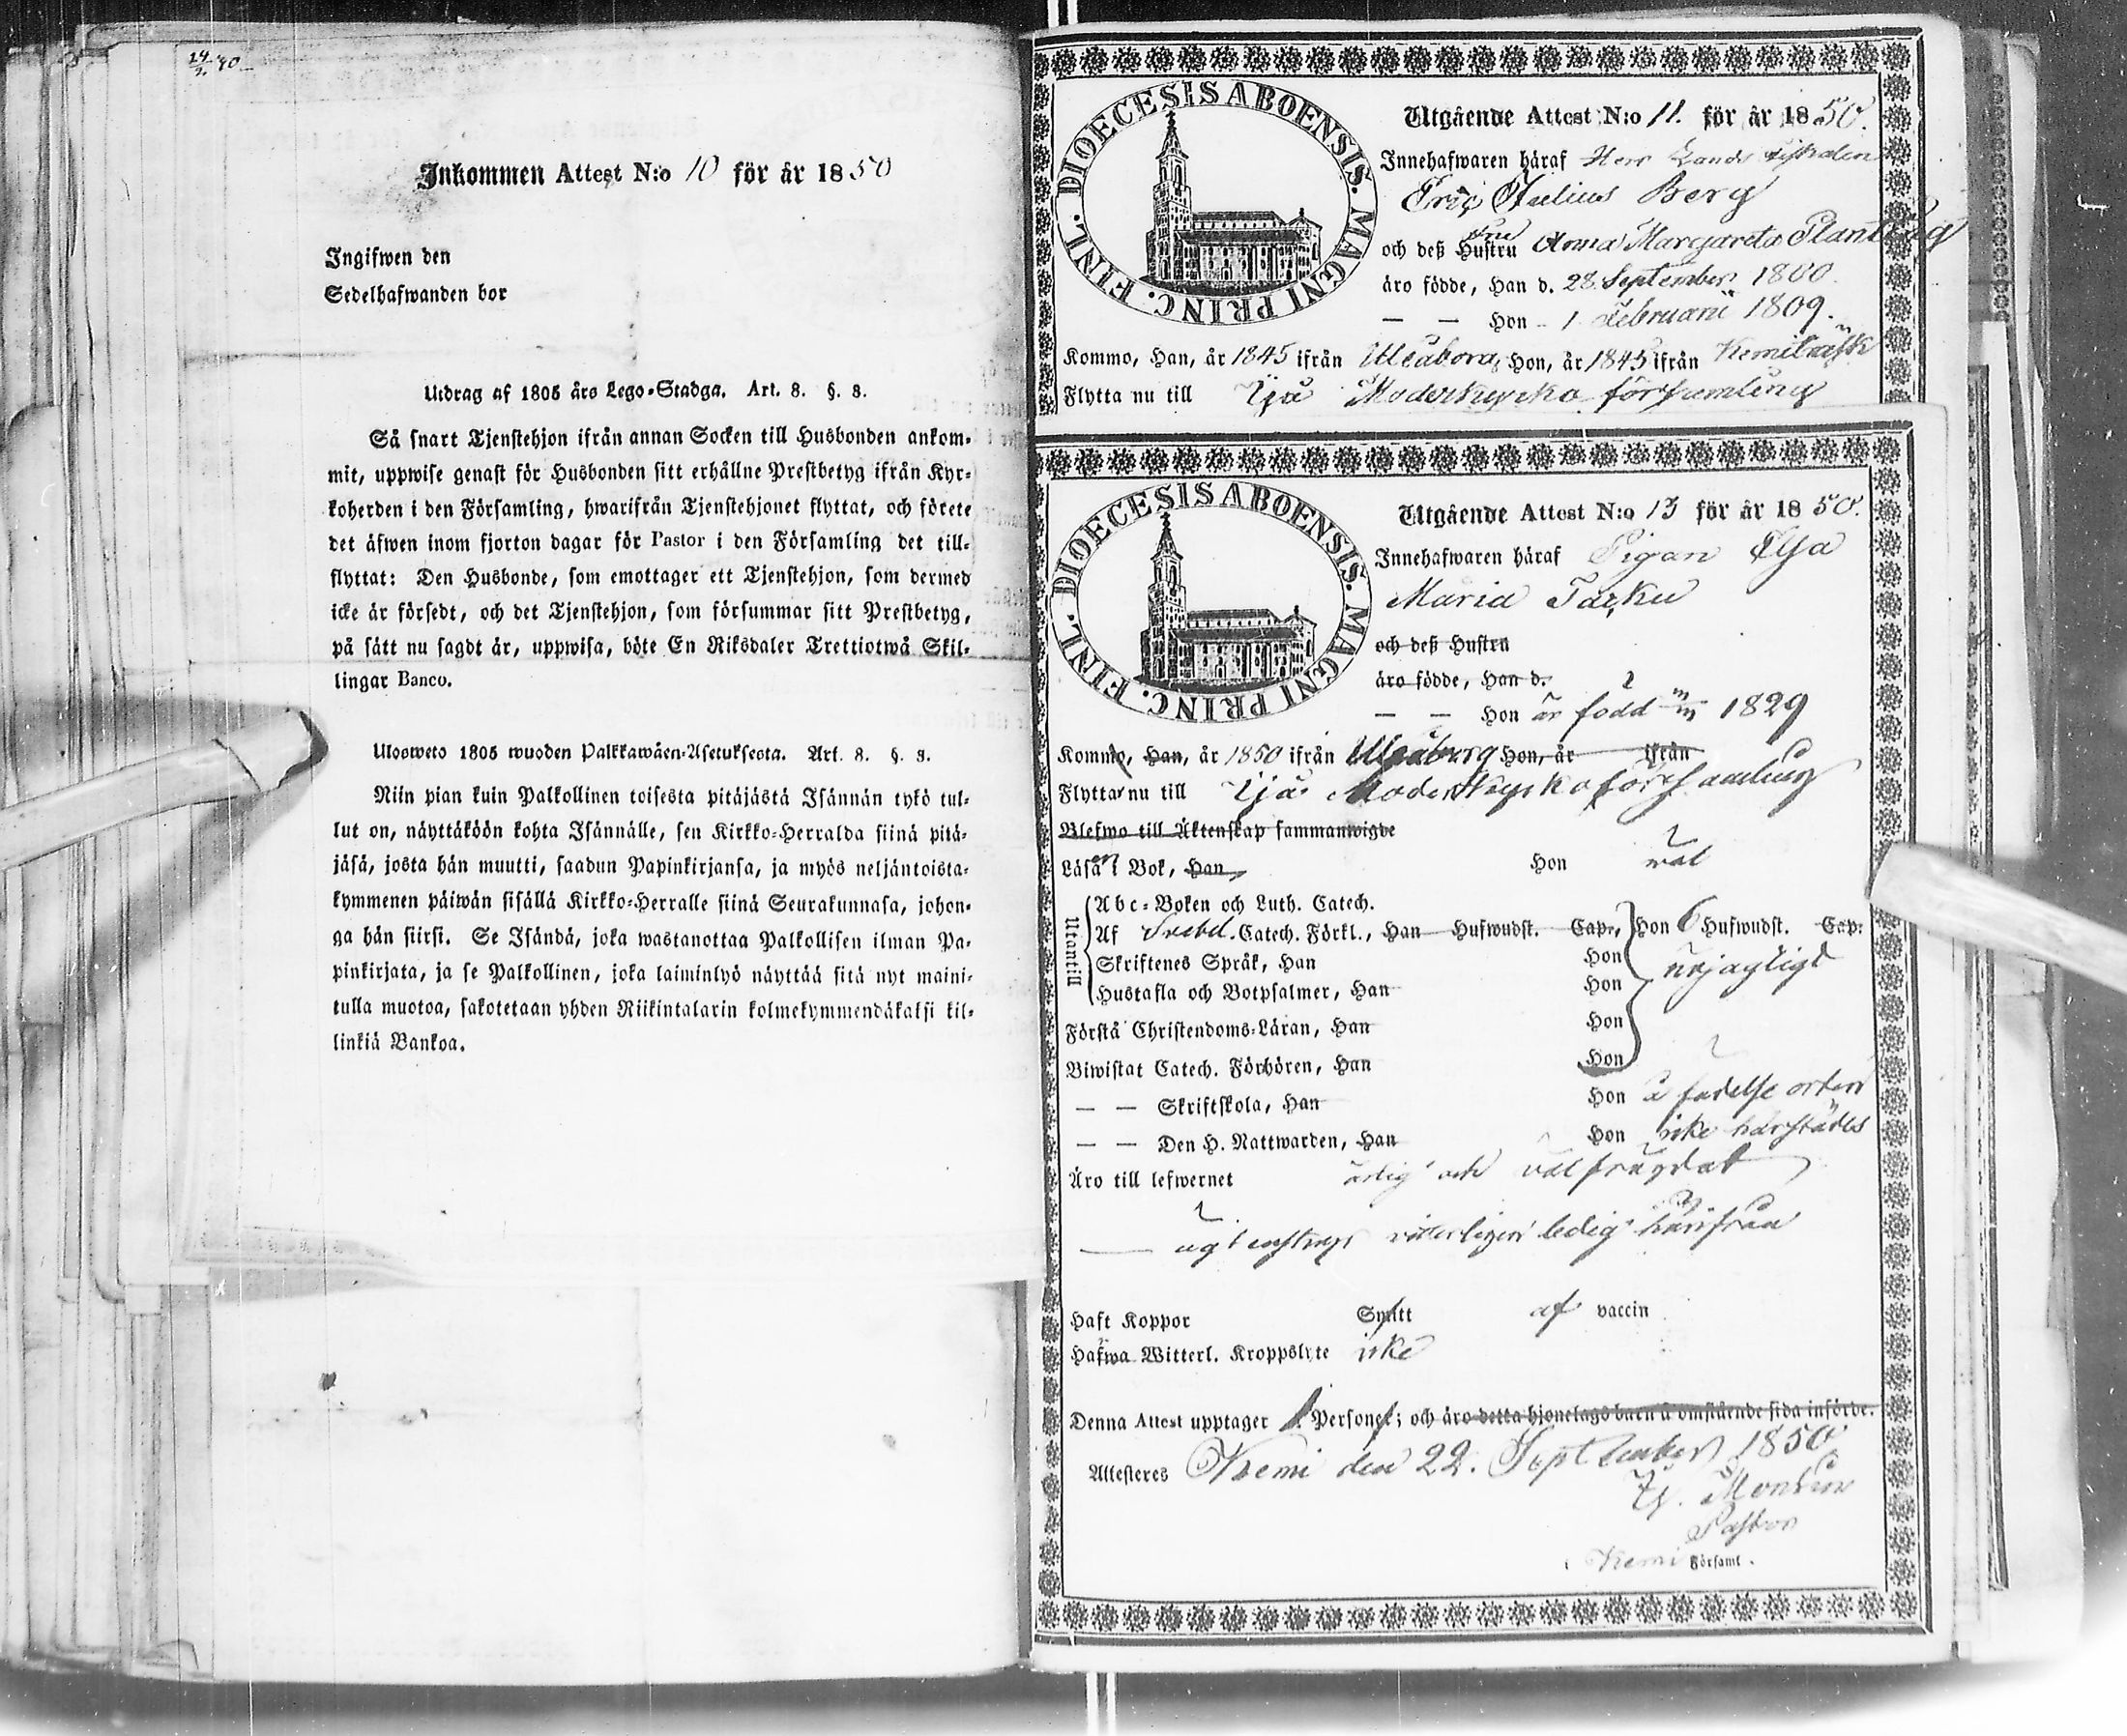 24/2 40
Inkommen Attest N:o 10 för år 1850
Ingifwen den
Sedelhafwanden bor
Utdrag af 1805 års Lego-Stadga. Art. 8. §. 8.
Så snart Tjenstehjon ifrån annan Socken till Husbonden ankom-
mit, uppwise genast för Husbonden sitt erhållne Prestbetyg ifrån Kyr-
koherden i den Församling, hwarifrån Tjenstehjonet flyttat, och förete
det äfwen inom fjorton dagar för Pastor i den Församling det till-
flyttat: Den Husbonde, som emottager ett Tjenstehjon, som dermed
icke är försedt, och det Tjenstehjon, som försummar sitt Prestbetyg,
på sätt nu sagdt är, uppwisa, böte En Riksdaler Trettiotwå Skil-
lingar Banco.
Ulosweto 1805 wuoden Palkkawäen-Asetuksesta. Art. 8. §. 8.
Niin pian kuin Palkollinen toisesta pitäjästä Isännän tykö tul-
lut on, näyttäköön kohta Isännälle, sen Kirkko-Herralda siinä pitä-
jäsä, josta hän muutti, saadun Papinkirjansa, ja myös neljäntoista-
kymmenen päiwän sisällä Kirkko-Herralle siinä Seurakunnasa, johon-
ga hän siirsi. Se Isändä, joka wastanottaa Palkollisen ilman Pa-
pinkirjata, ja se Palkollinen, joka laiminlyö näyttää sitä nyt maini-
tulla muotoa, sakotetaan yhden Riikintalarin kolmekymmendäkaksi kil-
linkiä Bankoa.
DIOECESIS ABOENSIS. MAGNI PRINC. FINL.
Utgående Attest N:o 11. för år 1850.
Innehafwaren häraf Herr Lands
Eric Julius Berg
och deß Hustru Fru Anna Margareta Planting
äro födde, Han d. 28 September 1800.
— — Hon - 1 Februarii 1809.
Kommo, Han, år 1845 ifrån Uleåborg, Hon, år 1845 ifrån Kemiträsk
Flytta nu till Ijå Moderkyrko församling
DIOECESIS ABOENSIS. MAGNI PRINC. FINL.
Utgående Attest N:o 13 för år 1850.
Innehafwaren häraf Pigan
Maria
och deß Hustru
äro födde, Han d.
— — Hon är född 1829
Kommo, Han, år 1850 ifrån Uleåborg Hon, år ifrån
Flytta nu till Ijå Moderkyrko församling
Blefwo till Äktenskap sammanwigde
Läsa i Bok, Han Hon wäl
Utantill
Abc-Boken och Luth. Catech.
Af Svebel. Catech. Förkl., Han Hufwudst. Cap., Hon 6 Hufwudst. Cap.
Skriftenes Språk, Han Hon
Hustafla och Botpsalmer, Han Hon
Första Christendoms-Läran, Han Hon
Biwistat Catech. Förhören, Han Hon
— — Skriftskola, Han Hon å födelse orten
— — Den H. Nattwarden, Han Hon icke härstädes
Äro till lefwernet ärlig och wälfrägdat
ledig härifrån
Haft Koppor Smitt af vaccin
Hafwa Witterl. Kroppslyte icke
Denna Attest upptager 1 Personer; och äro detta hjonelags barn å omstående sida införde.
Attesteres Kemi den 22. September 1850
Pastor
i Kemi Församl.